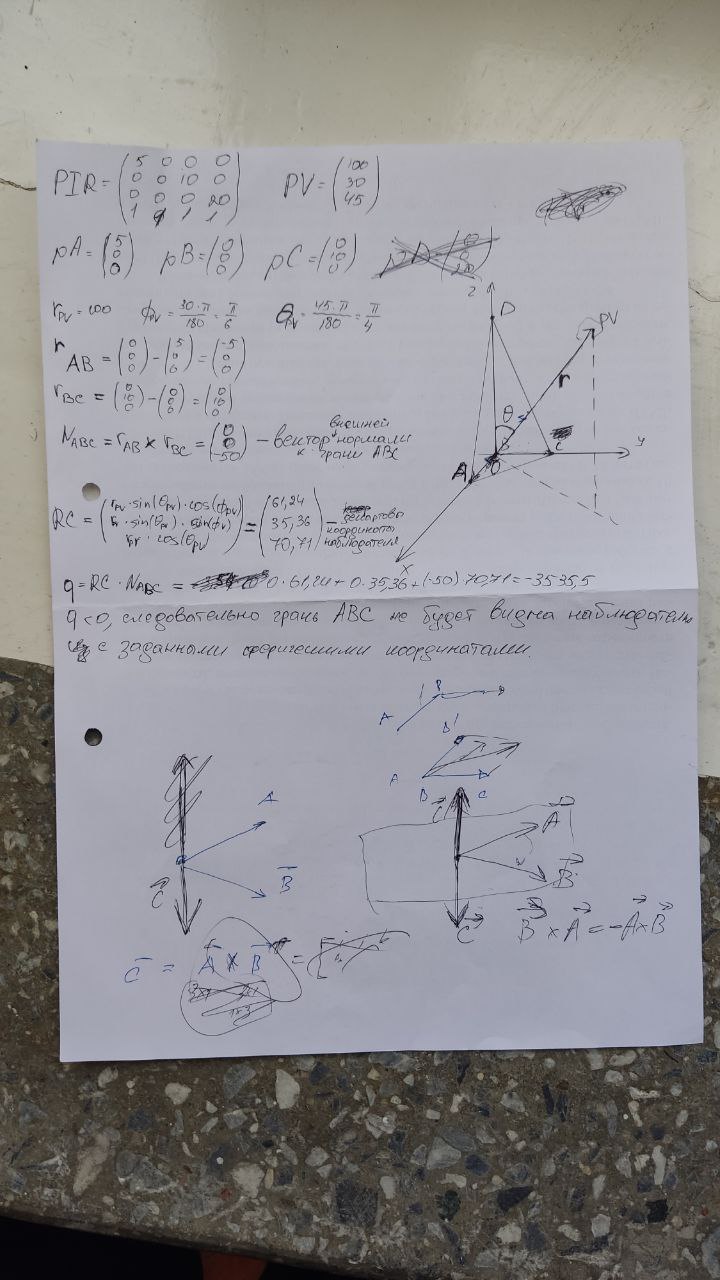 PIR = (5 0 0 0 / 0 0 10 0 / 0 0 0 20 / 1 1 1 1) PV = (100 / 30 / 45)
pA = (5 / 0 / 0) pB = (0 / 0 / 0) pC = (0 / 10 / 0)
r_PV = 100 ϕ_PV = 30·π/180 = π/6 θ_PV = 45·π/180 = π/4
r_AB = (0 / 0 / 0) - (5 / 0 / 0) = (-5 / 0 / 0)
r_BC = (0 / 10 / 0) - (0 / 0 / 0) = (0 / 10 / 0)
N_ABC = r_AB × r_BC = (0 / 0 / -50) - вектор внешней нормали к грани ABC
z
D
PV
r
θ
B
O
C
y
A
x
RC = (r_PV · sin(θ_PV) · cos(ϕ_PV) / r · sin(θ_PV) · sin(ϕ_PV) / r · cos(θ_PV)) = (61,24 / 35,36 / 70,71) - декартовы координаты наблюдателя
q = RC · N_ABC = 0·61,24 + 0·35,36 + (-50)·70,71 = -3535,5
q < 0, следовательно грань ABC не будет видна наблюдателю
с заданными сферическими координатами.
A B
D'
A B C
A
B
C
C
A
B
C
C = A × B
B × A = -A × B